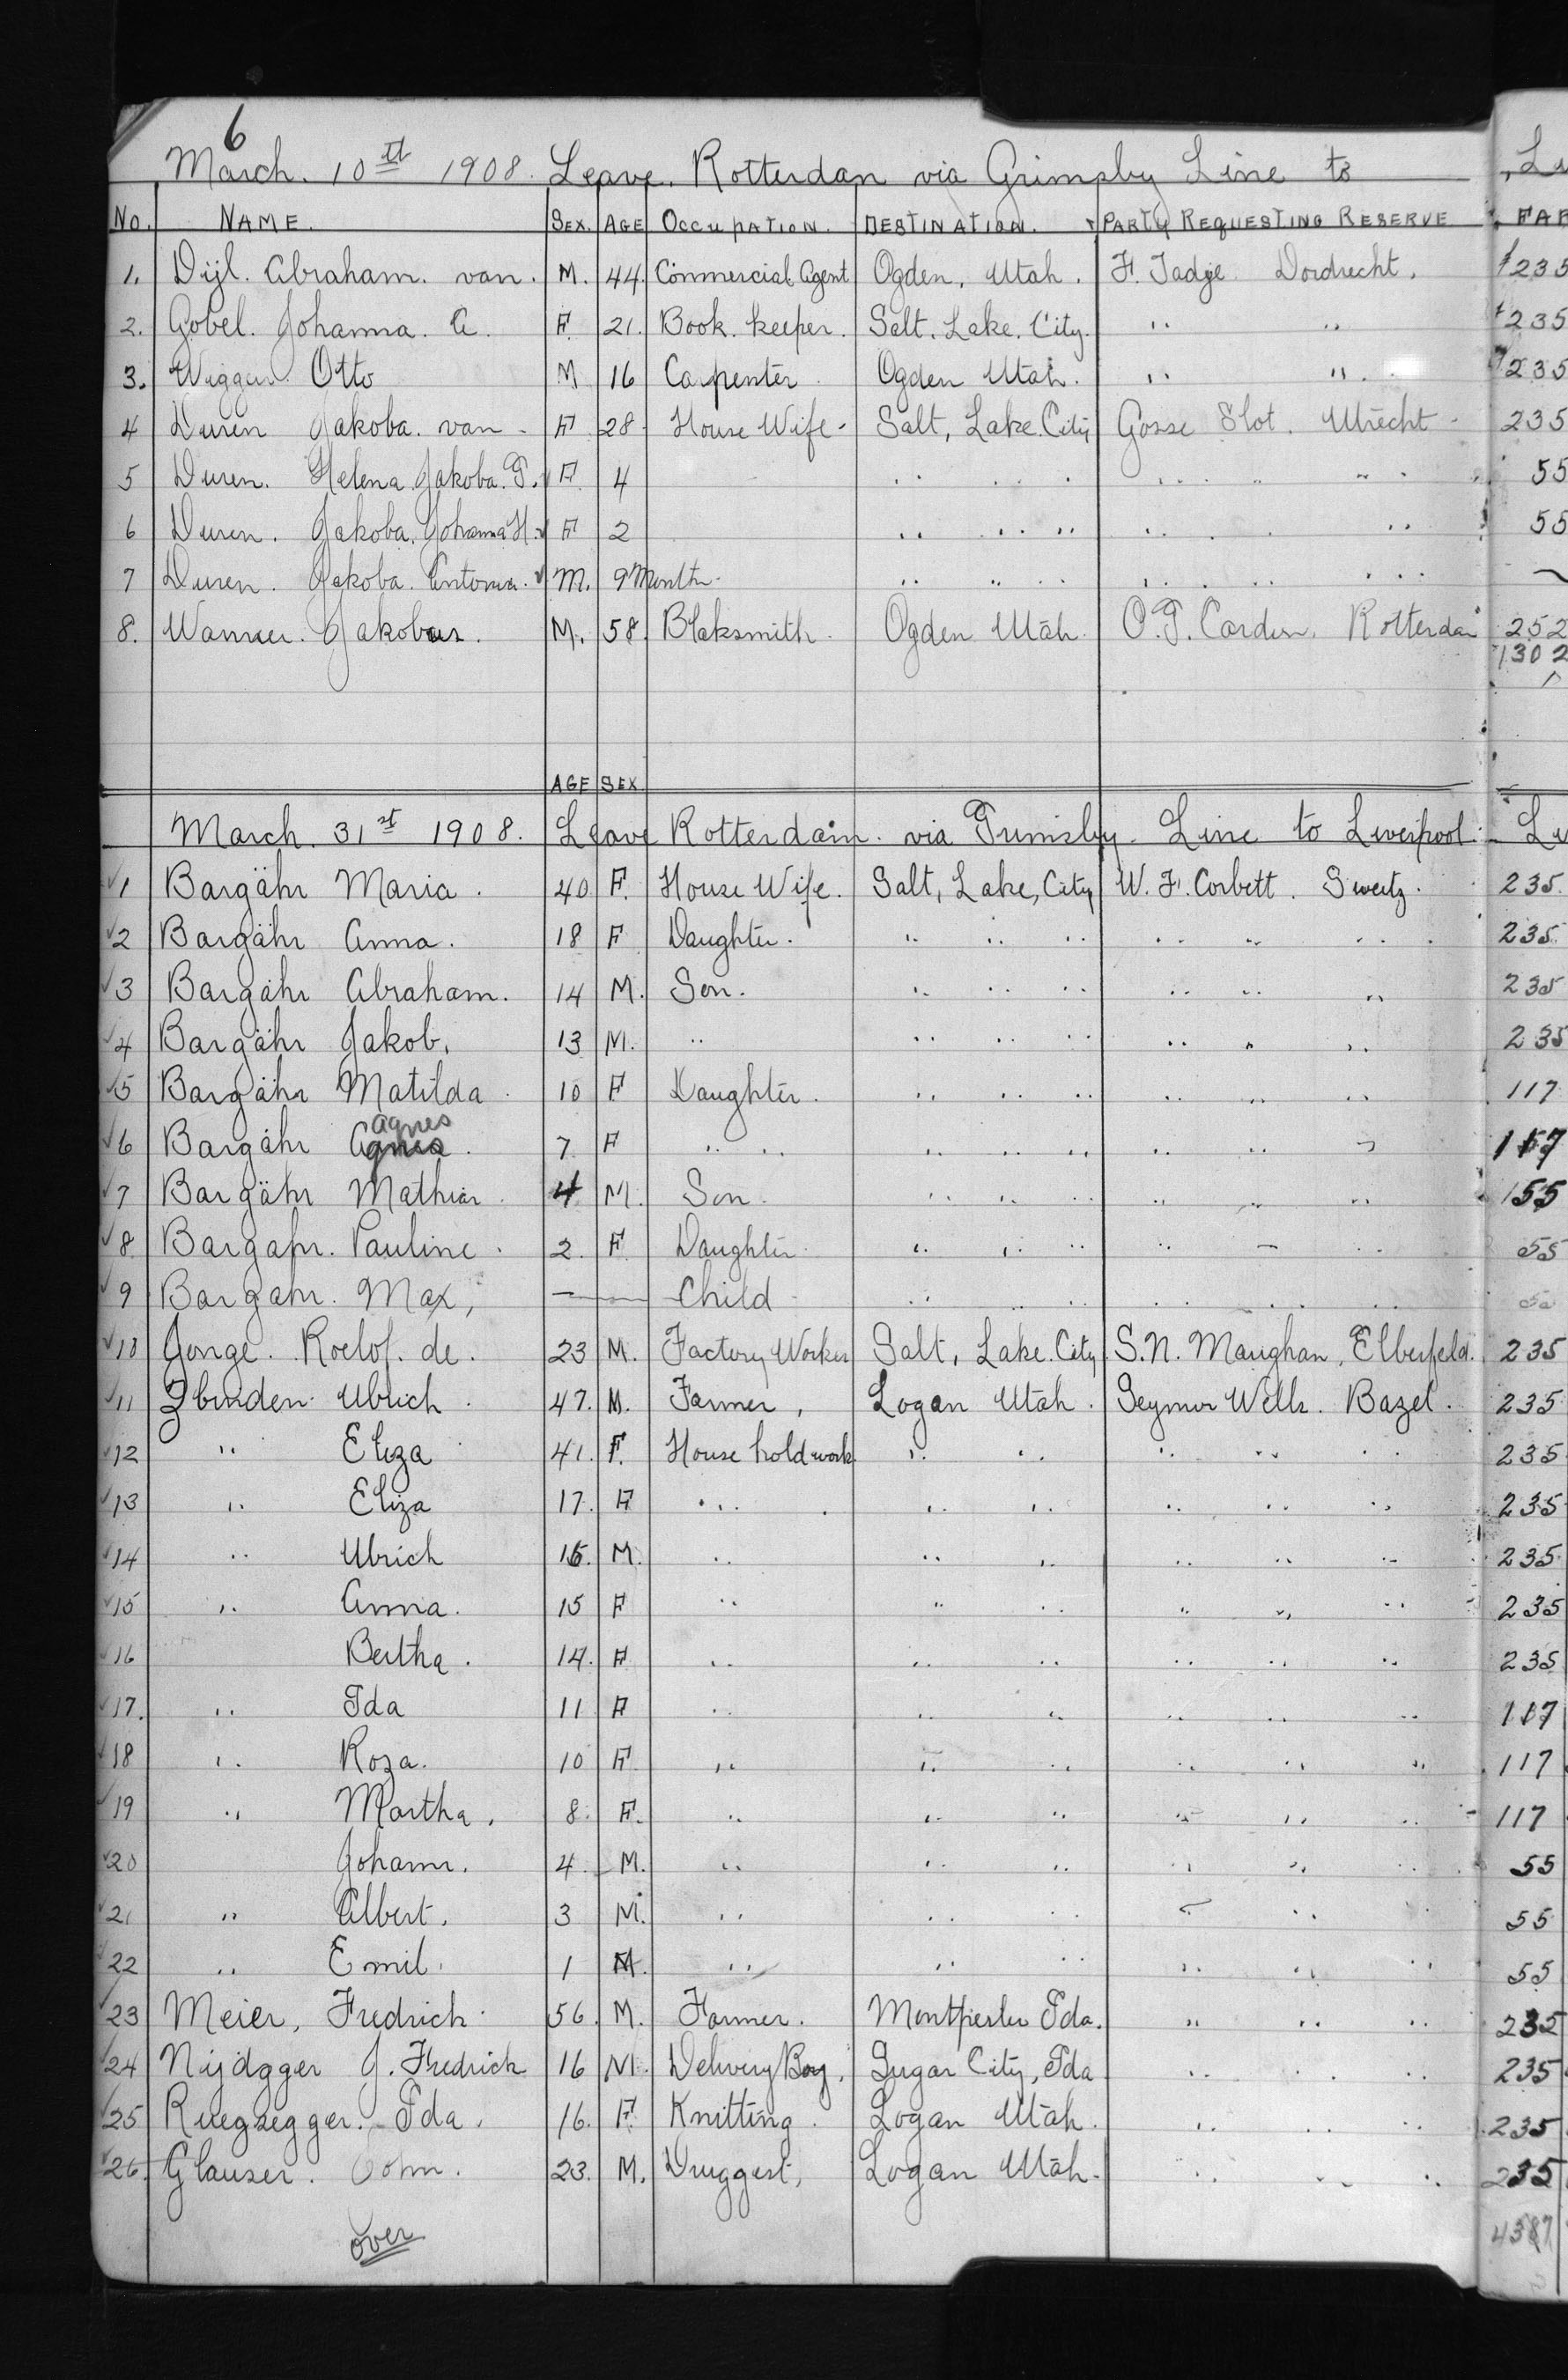 6
March. 10th 1908. Leave. Rotterdan via Grimsby Line to
No. NAME. SEX. AGE OCCUPATION. DESTINATION. PARTY REQUESTING RESERVE FAR
1. Dijl. Abraham. van. M. 44. Commercial Agent Ogden, Utah. F. Tadje Dordrecht. 235
2. Gobel. Johanna. A. F. 21. Book. keeper. Salt. Lake. City. " " 235
3. Otto M 16 Carpenter Ogden Utah. " " 235
4 Duren Jakoba. van - F 28 House Wife - Salt, Lake City Gosse Slot. Utrecht - 235
5 Duren. Helena. Jakoba. F. 4 " " " " " " 55
6 Duren. Jakoba. Johanna H. F 2 " " " " " 55
7 Duren. Jakoba. Antonia. M. 9 Month. " " " " " "
8. Jakobus. M. 58. Blaksmith. Ogden Utah O. J. Rotterdam 252
1302
AGE SEX
March. 31st 1908. Leave Rotterdam. via Grimsby. Line to Liverpool.
1 Bargähr Maria. 40 F. House Wife. Salt, Lake, City W. F. Corbett. Sweitz. 235.
2 Bargähr Anna. 18 F Daughter. " " " " " " 235.
3 Bargähr Abraham. 14 M. Son. " " " " " " 235
4 Bargähr Jakob. 13 M. " " " " " " " 235
5 Bargähr Matilda 10 F Daughter. " " " " " " 117
6 Bargähr Agnes 7 F " " " " " " " 117
agnes
7 Bargähr Mathias 4 M. Son. " " " " " " 55
8 Bargahr. Pauline. 2. F. Daughter " " " " " " 55
9 Bargahr. Max, — Child " " " " " "
10 Jonge. Roelof. de. 23 M. Factory Worker Salt, Lake. City. S. N. Maughan, Elberfeld. 235
11 Zbinden Ulrich. 47. M. Farmer, Logan Utah. Seymor Wells. Bazel. 235
12 " Eliza 41. F. House hold work " " " " " 235
13 " Eliza 17. F " " " " " " 235
14 " Ulrich 15. M. " " " " " " 235
15 " Anna. 15 F " " " " " " 235
16 Bertha. 14. F " " " " " " 235
17. " Ida 11 F " " " " " " 117
18 " Roza. 10 F " " " " " " 117
19 " Martha. 8. F. " " " " " " 117
20 Johann. 4. M. " " " " " " 55
21 " Albert. 3 M. " " " " " 55
22 " Emil. 1 M. " " " " " " 55
23 Meier, Fredrick. 56. M. Farmer. Montperler Ida. " " " 232
24 J. Fredrick 16 M. Delivery Boy, Sugar City, Ida " " " 235
25 Ruegsegger. Ida. 16. F. Knitting. Logan Utah. " " " 235
26. Glauser. John. 23. M. Druggest, Logan Utah. " " " 235
4387
over